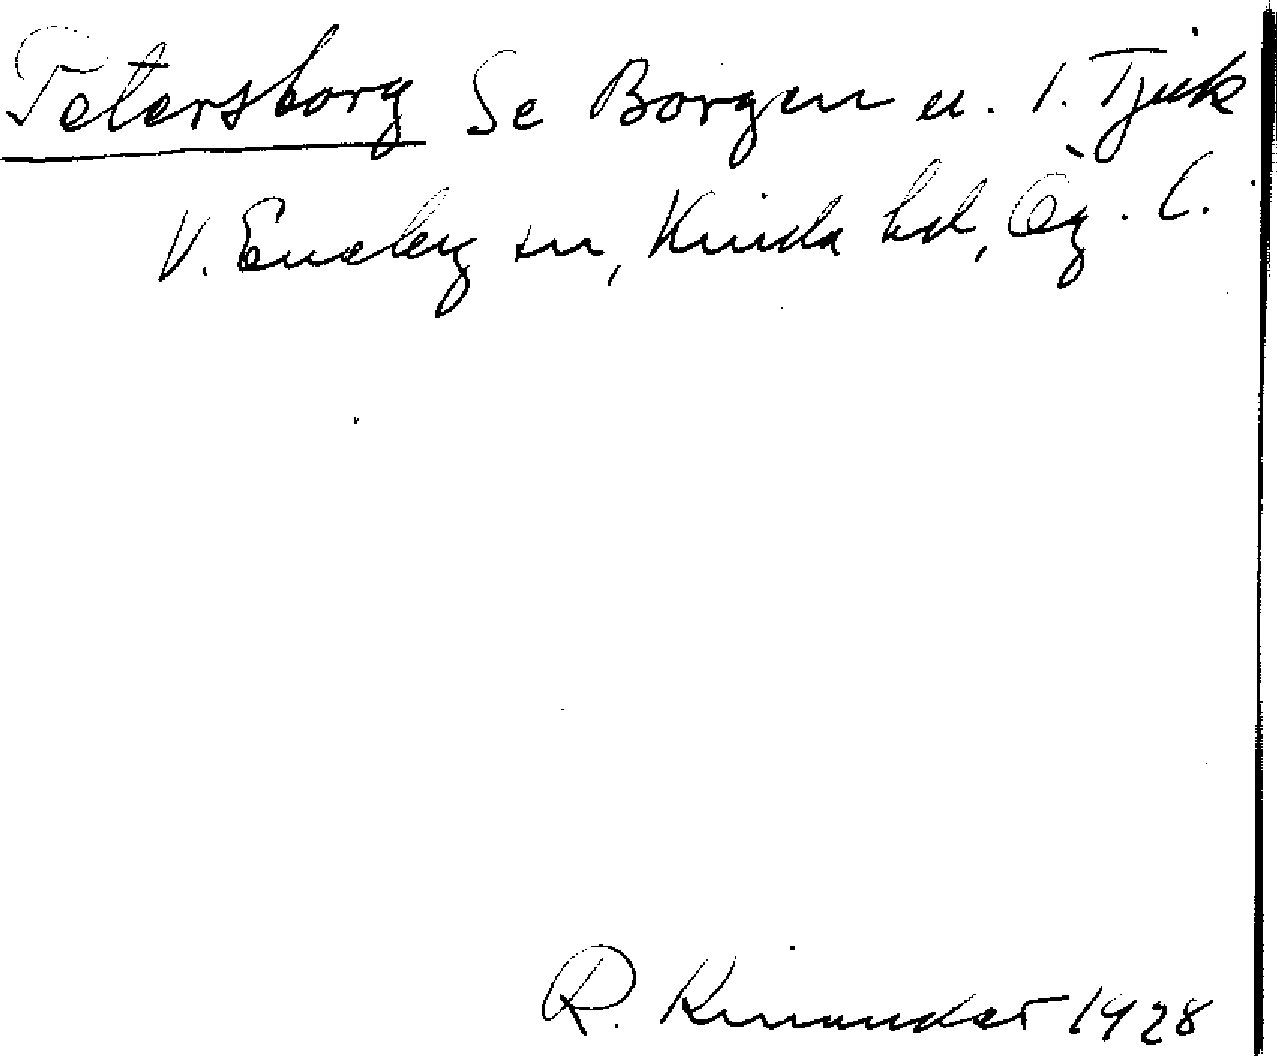 Petersborg Se Borgen u. 1. Tjuk
V. Eneby sn, Kinda hd, Ög. l.
R. Kinander 1928